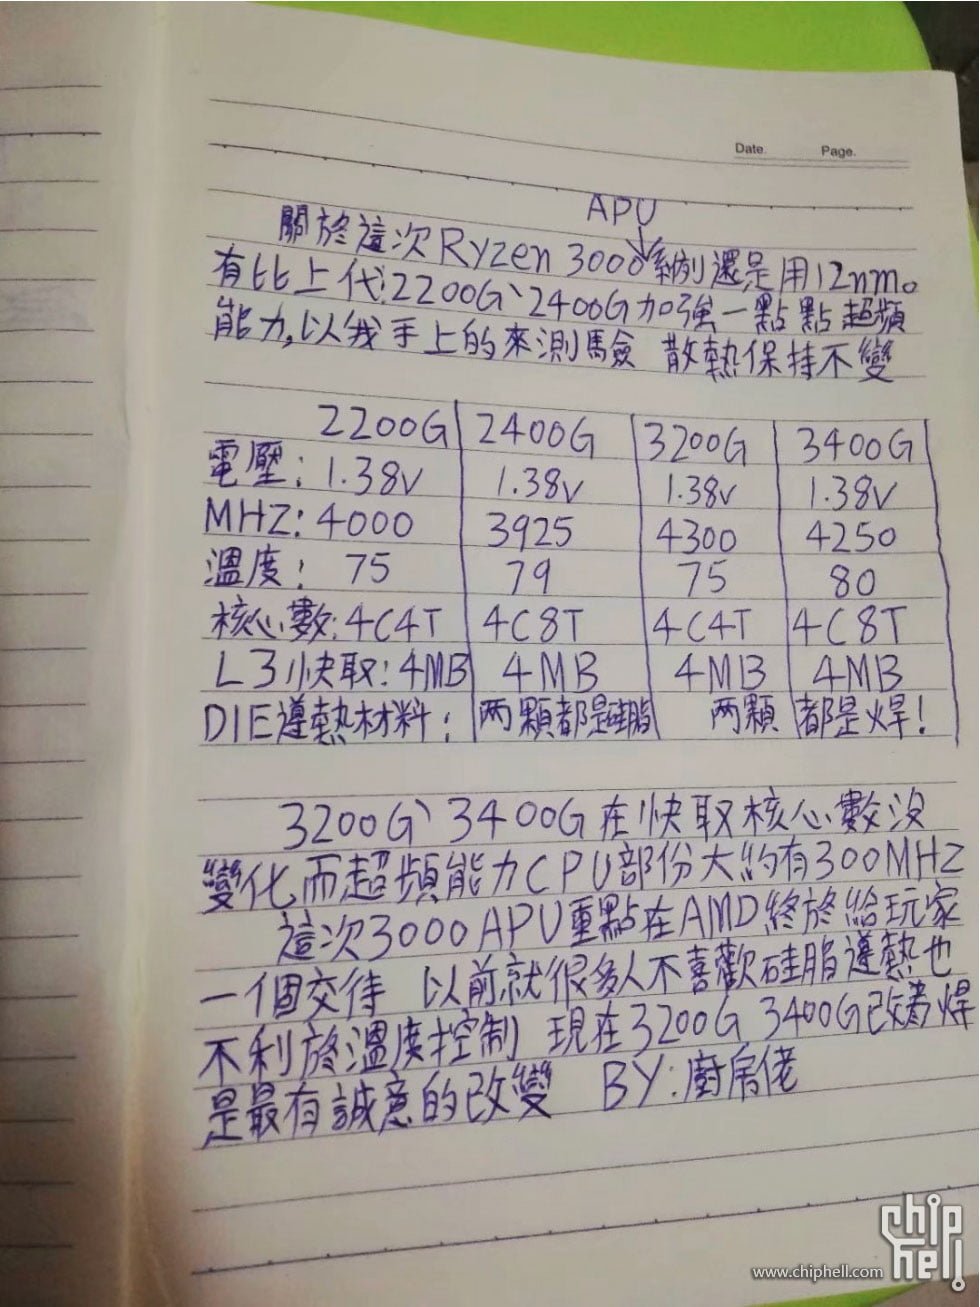 Date. Page.
APU
關於這次Ryzen 3000系列還是用12nm。
有比上代2200G、2400G加強一點點超頻
能力,以我手上的來測驗 散熱保持不變
2200G 2400G 3200G 3400G
電壓: 1.38v 1.38v 1.38v 1.38v
MHZ: 4000 3925 4300 4250
溫度: 75 79 75 80
核心數: 4C4T 4C8T 4C4T 4C8T
L3快取: 4MB 4MB 4MB 4MB
DIE導熱材料: 两顆都是硅脂 两顆都是焊!
3200G、3400G在快取核心數没
變化而超頻能力CPU部份大約有300MHZ
這次3000APU重點在AMD終於給玩家
一個交待 以前就很多人不喜歡硅脂導熱也
不利於溫度控制 現在3200G 3400G改為焊
是最有誠意的改變 BY:廚房佬
chip hell
www.chiphell.com